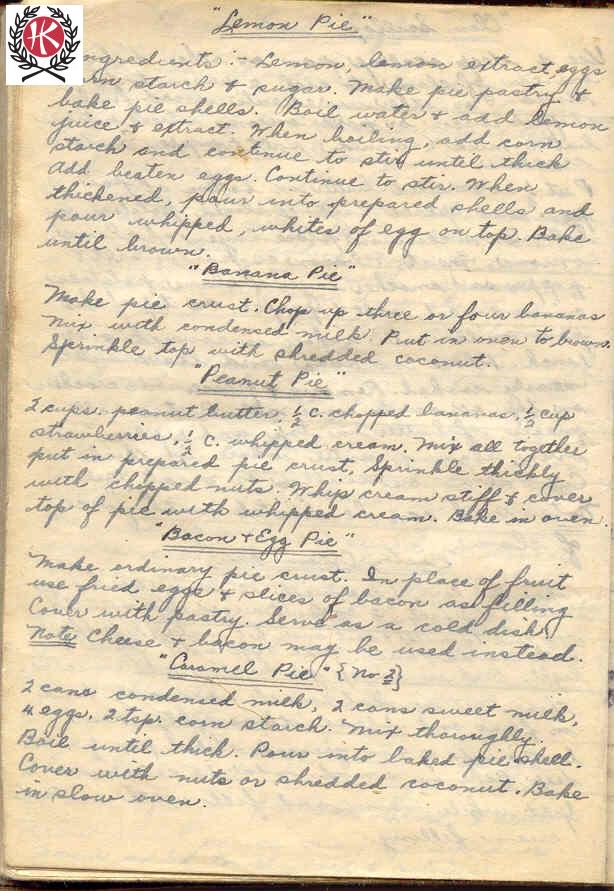 "Lemon Pie"
HK
ngredients:- Lemon, lemon extract, eggs
starch & sugar. Make pie pastry &
bake pie shells. Boil water & add lemon
juice & extract. When boiling, add corn
starch and continue to stir until thick
Add beaten eggs. Continue to stir. When
thickened, pour into prepared shells and
pour whipped, whites of egg on top. Bake
until brown.
"Banana Pie"
Make pie crust. Chop up three or four bananas
Mix with condensed milk. Put in oven to brown.
Sprinkle top with shredded coconut.
"Peanut Pie"
2 cups. peanut butter, ½ c. chopped bananas, ½ cup
strawberries, ½ c. whipped cream. Mix all together
put in prepared pie crust. Sprinkle thickly
with chipped nuts. Whip cream stiff & cover
top of pie with whipped cream. Bake in oven.
"Bacon & Egg Pie"
Make ordinary pie crust. In place of fruit
use fried eggs & slices of bacon as filling
Cover with pastry. Serve as a cold dish.
Note Cheese & bacon may be used instead.
"Caramel Pie" {No 2}
2 cans condensed milk, 2 cans sweet milk,
4 eggs, 2 tsp. corn starch. Mix thoroughly.
Boil until thick. Pour into baked pie shell.
Cover with nuts or shredded coconut. Bake
in slow oven.